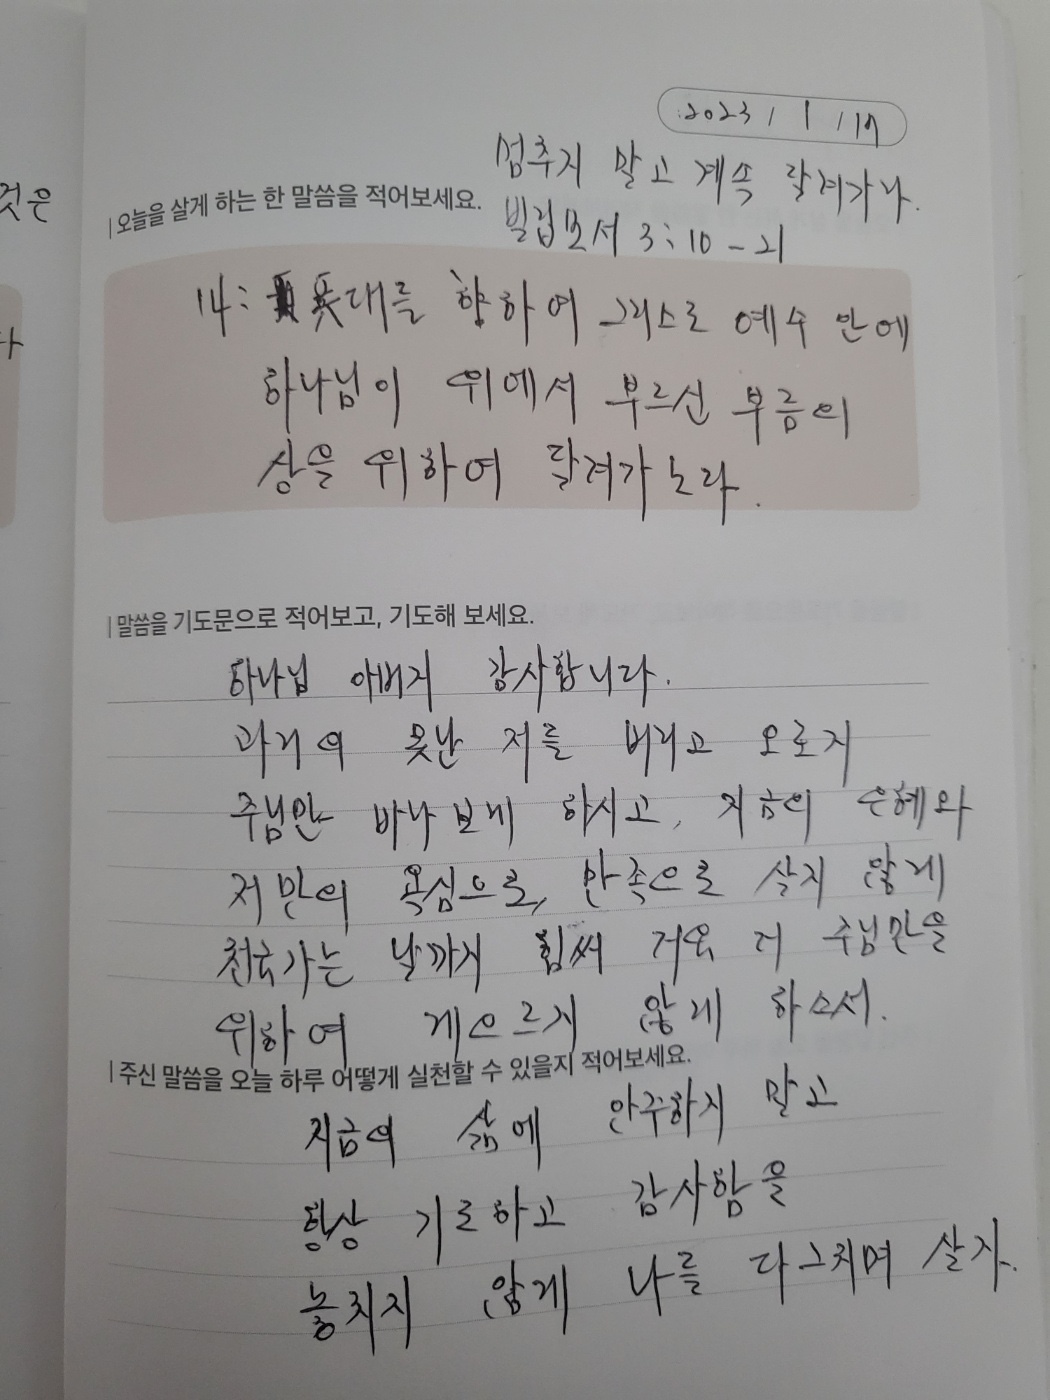 2023 / 1 / 17
멈추지 말고 계속 달려가라.
빌립보서 3:10-21
것은
| 오늘을 살게 하는 한 말씀을 적어보세요.
14: 푯대를 향하여 그리스도 예수 안에
하나님이 위에서 부르신 부름의
상을 위하여 달려가노라.
| 말씀을 기도문으로 적어보고, 기도해 보세요.
하나님 아버지 감사합니다.
과거의 못난 저를 버리고 오로지
주님만 바라보게 하시고, 지금의 은혜와
저만의 욕심으로, 만족으로 살지 않게
천국가는 날까지 힘써 주님만을
위하여 게으르지 않게 하소서.
| 주신 말씀을 오늘 하루 어떻게 실천할 수 있을지 적어보세요.
지금의 삶에 안주하지 말고
항상 기도하고 감사함을
놓치지 않게 나를 다그치며 살자.